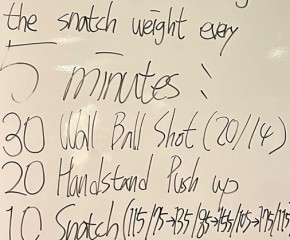 the snatch weight every
5 minutes:
30 Wall Ball Shot (20/14)
20 Handstand Push up
10 Snatch (115/75→135/95→155/105→175/115